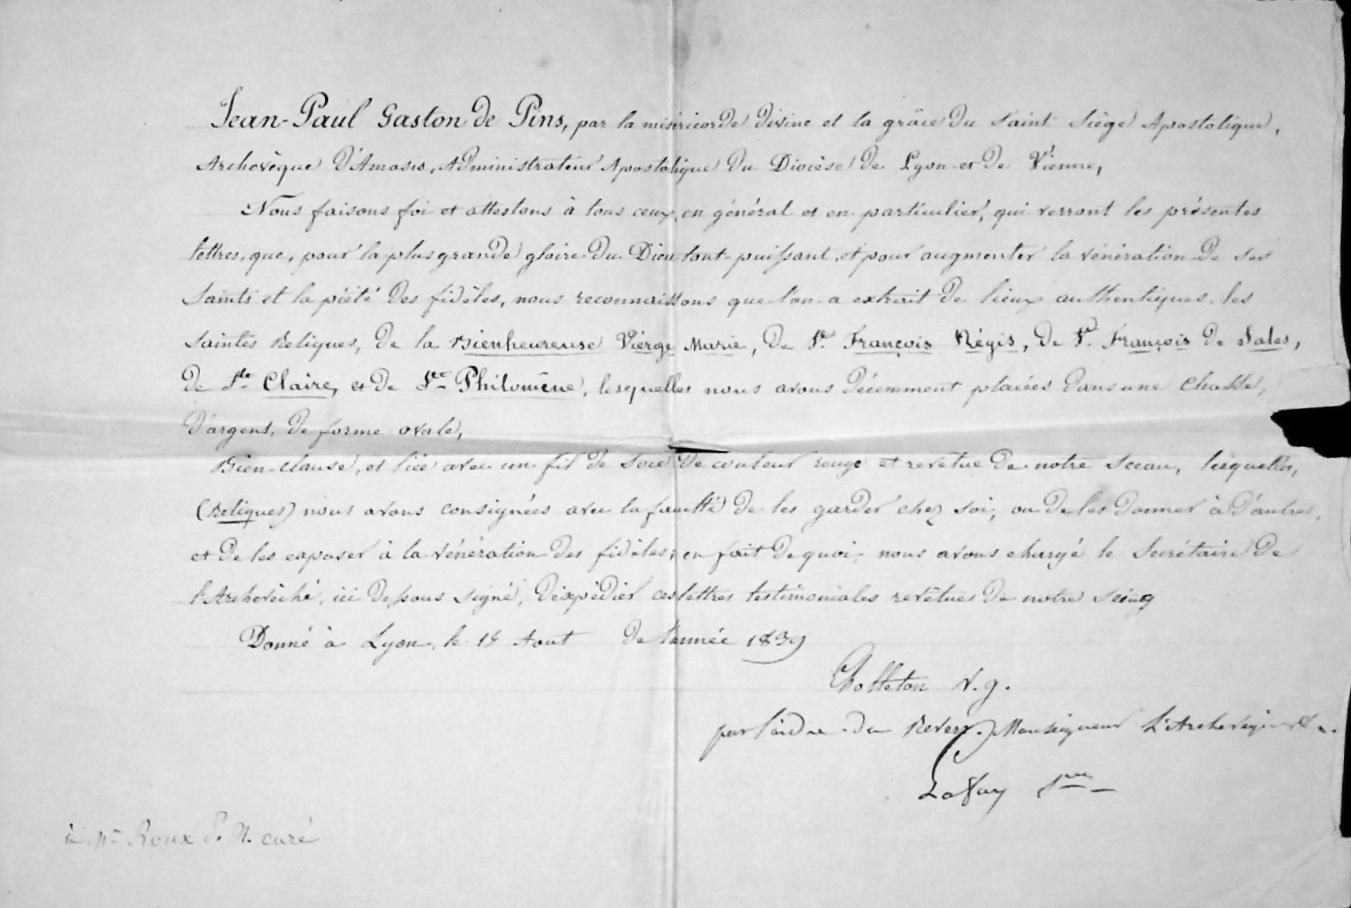 Jean-Paul Gaston de Pins, par la miséricorde divine et la grâce du Saint Siège Apostolique,
Archevèque d'Amasis, Administrateur Apostolique du Diocèse de Lyon et de Vienne,
Nous faisons foi et attestons à tous ceux, en général et en particulier, qui verront les présentes
lettres, que, pour la plus grande gloire du Dieu tout puissant, et pour augmenter la vénération de ses
Saints et la piété des fidèles, nous reconnaissons que l'on a extrait de lieux authentiques, les
Saintes Reliques, de la Bienheureuse Vièrge Marie, de St. François Régis, de St. François de Sales,
de Ste Claire, et de Ste Philomène, lesquelles nous avons décemment placées dans une Chasse,
d'argent, de forme ovale,
Bien clause, et liée avec un fil de soie de couleur rouge et revetue de notre sceau, lesquelles,
(Reliques) nous avons consignées avec la faculté de les garder chez soi, ou de les donner à d'autres,
et de les exposer à la vénération des fidèles; en foit de quoi, nous avons chargé le Secrétaire de
l'Archevêché, ici dessous signé, d'éxpédier ces lettres testimoniales revêtues de notre seing
Donné à Lyon, le 18 Aout de l'année 1839
Cholleton v. g.
par l'ordre du Rever. Monseigneur L'Archevêque
Lafay Sre
à Mr Roux P. N. curé